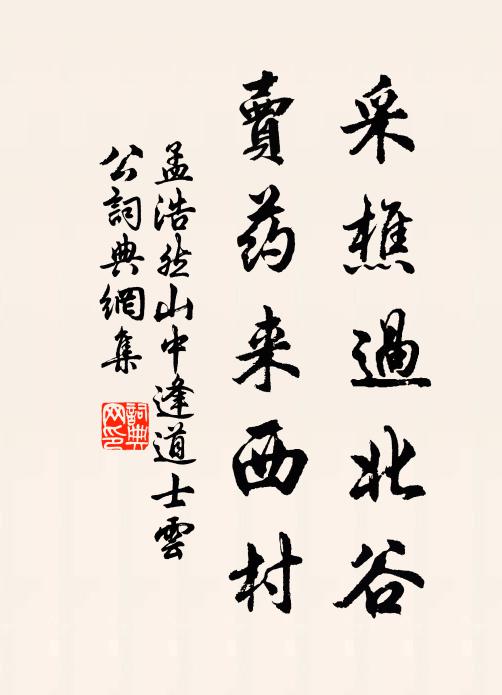 采樵過北谷
賣药来西村
孟浩然山中逢道士雲
公詞典網集
詞典网印